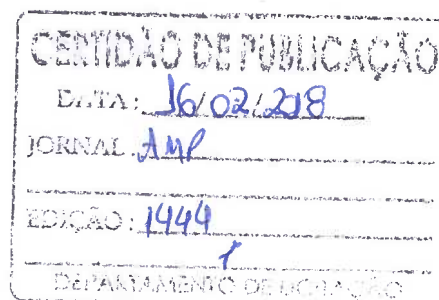 CERTIDÃO DE PUBLICAÇÃO
DATA: 16/02/2018
JORNAL AMP
EDIÇÃO: 1444
DEPARTAMENTO DE LICITAÇÃO